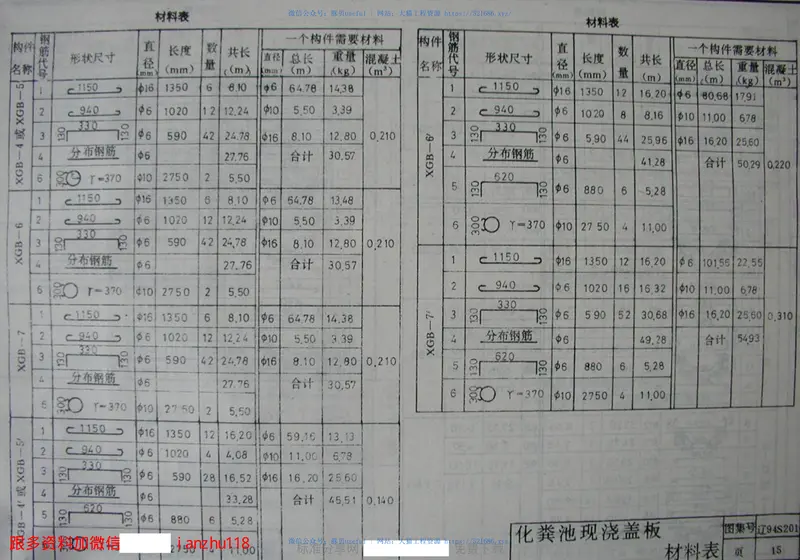 材料表
构件名称 钢筋代号 形状尺寸 直径(mm) 长度(mm) 数量 共长(m) 一个构件需要材料 直径(mm) 总长(m) 重量(kg) 混凝土(m³)
XGB-4 或 XGB-5
1 1150 ϕ16 1350 6 8.10 ϕ6 64.78 14.38
2 940 ϕ6 1020 12 12.24 ϕ10 5.50 3.39
3 130 330 130 ϕ6 590 42 24.78 ϕ16 8.10 12.80 0.210
4 分布钢筋 ϕ6 27.76 合计 30.57
6 300 r=370 ϕ10 2750 2 5.50
XGB-6
1 1150 ϕ16 1350 6 8.10 ϕ6 64.78 13.48
2 940 ϕ6 1020 12 12.24 5.50 3.39
3 130 330 130 ϕ6 590 42 24.78 8.10 12.80 0.210
4 分布钢筋 ϕ6 27.76 合计 30.57
6 300 r=370 ϕ10 2750 2 5.50
XGB-7
1 1150 ϕ16 1350 6 8.10 ϕ6 64.78 14.38
2 940 ϕ6 1020 12 12.24 ϕ10 5.50 3.39
3 130 330 130 ϕ6 590 42 24.78 ϕ16 8.10 12.80 0.210
4 分布钢筋 27.76 合计 30.57
6 300 r=370 ϕ10 2750 2 5.50
XGB-4' 或 XGB-5'
1 1150 ϕ16 1350 12 16.20 ϕ6 59.16 13.13
2 940 ϕ6 1020 4 4.08 ϕ10 11.00 6.78
3 130 330 130 ϕ6 590 28 16.52 ϕ16 16.20 25.60
4 分布钢筋 ϕ6 33.28 合计 45.51 0.140
5 130 620 130 ϕ6 880 6 5.28
2750 11.00
材料表
构件名称 钢筋代号 形状尺寸 直径(mm) 长度(mm) 数量 共长(m) 一个构件需要材料 直径(mm) 总长(m) 重量(kg) 混凝土(m³)
XGB-6'
1 1150 ϕ16 1350 12 16.20 ϕ6 80.68 17.91
2 940 ϕ6 1020 8 8.16 ϕ10 11.00 6.78
3 130 330 130 ϕ6 5.90 44 25.96 ϕ16 16.20 25.60
4 分布钢筋 ϕ6 41.28 合计 50.29 0.220
5 130 620 130 ϕ6 880 6 5.28
6 300 r=370 ϕ10 2750 4 11.00
XGB-7'
1 1150 ϕ16 1350 12 16.20 ϕ6 101.56 22.55
2 940 ϕ6 1020 16 16.32 ϕ10 11.00 6.78
3 130 330 130 ϕ6 590 52 30.68 ϕ16 16.20 25.60 0.310
4 分布钢筋 ϕ6 49.28 合计 54.93
5 130 620 130 ϕ6 880 6 5.28
6 300 r=370 ϕ10 2750 4 11.00
化粪池现浇盖板
材料表
图集号 辽94S201
页 18
跟多资料加微信 ianzhu118